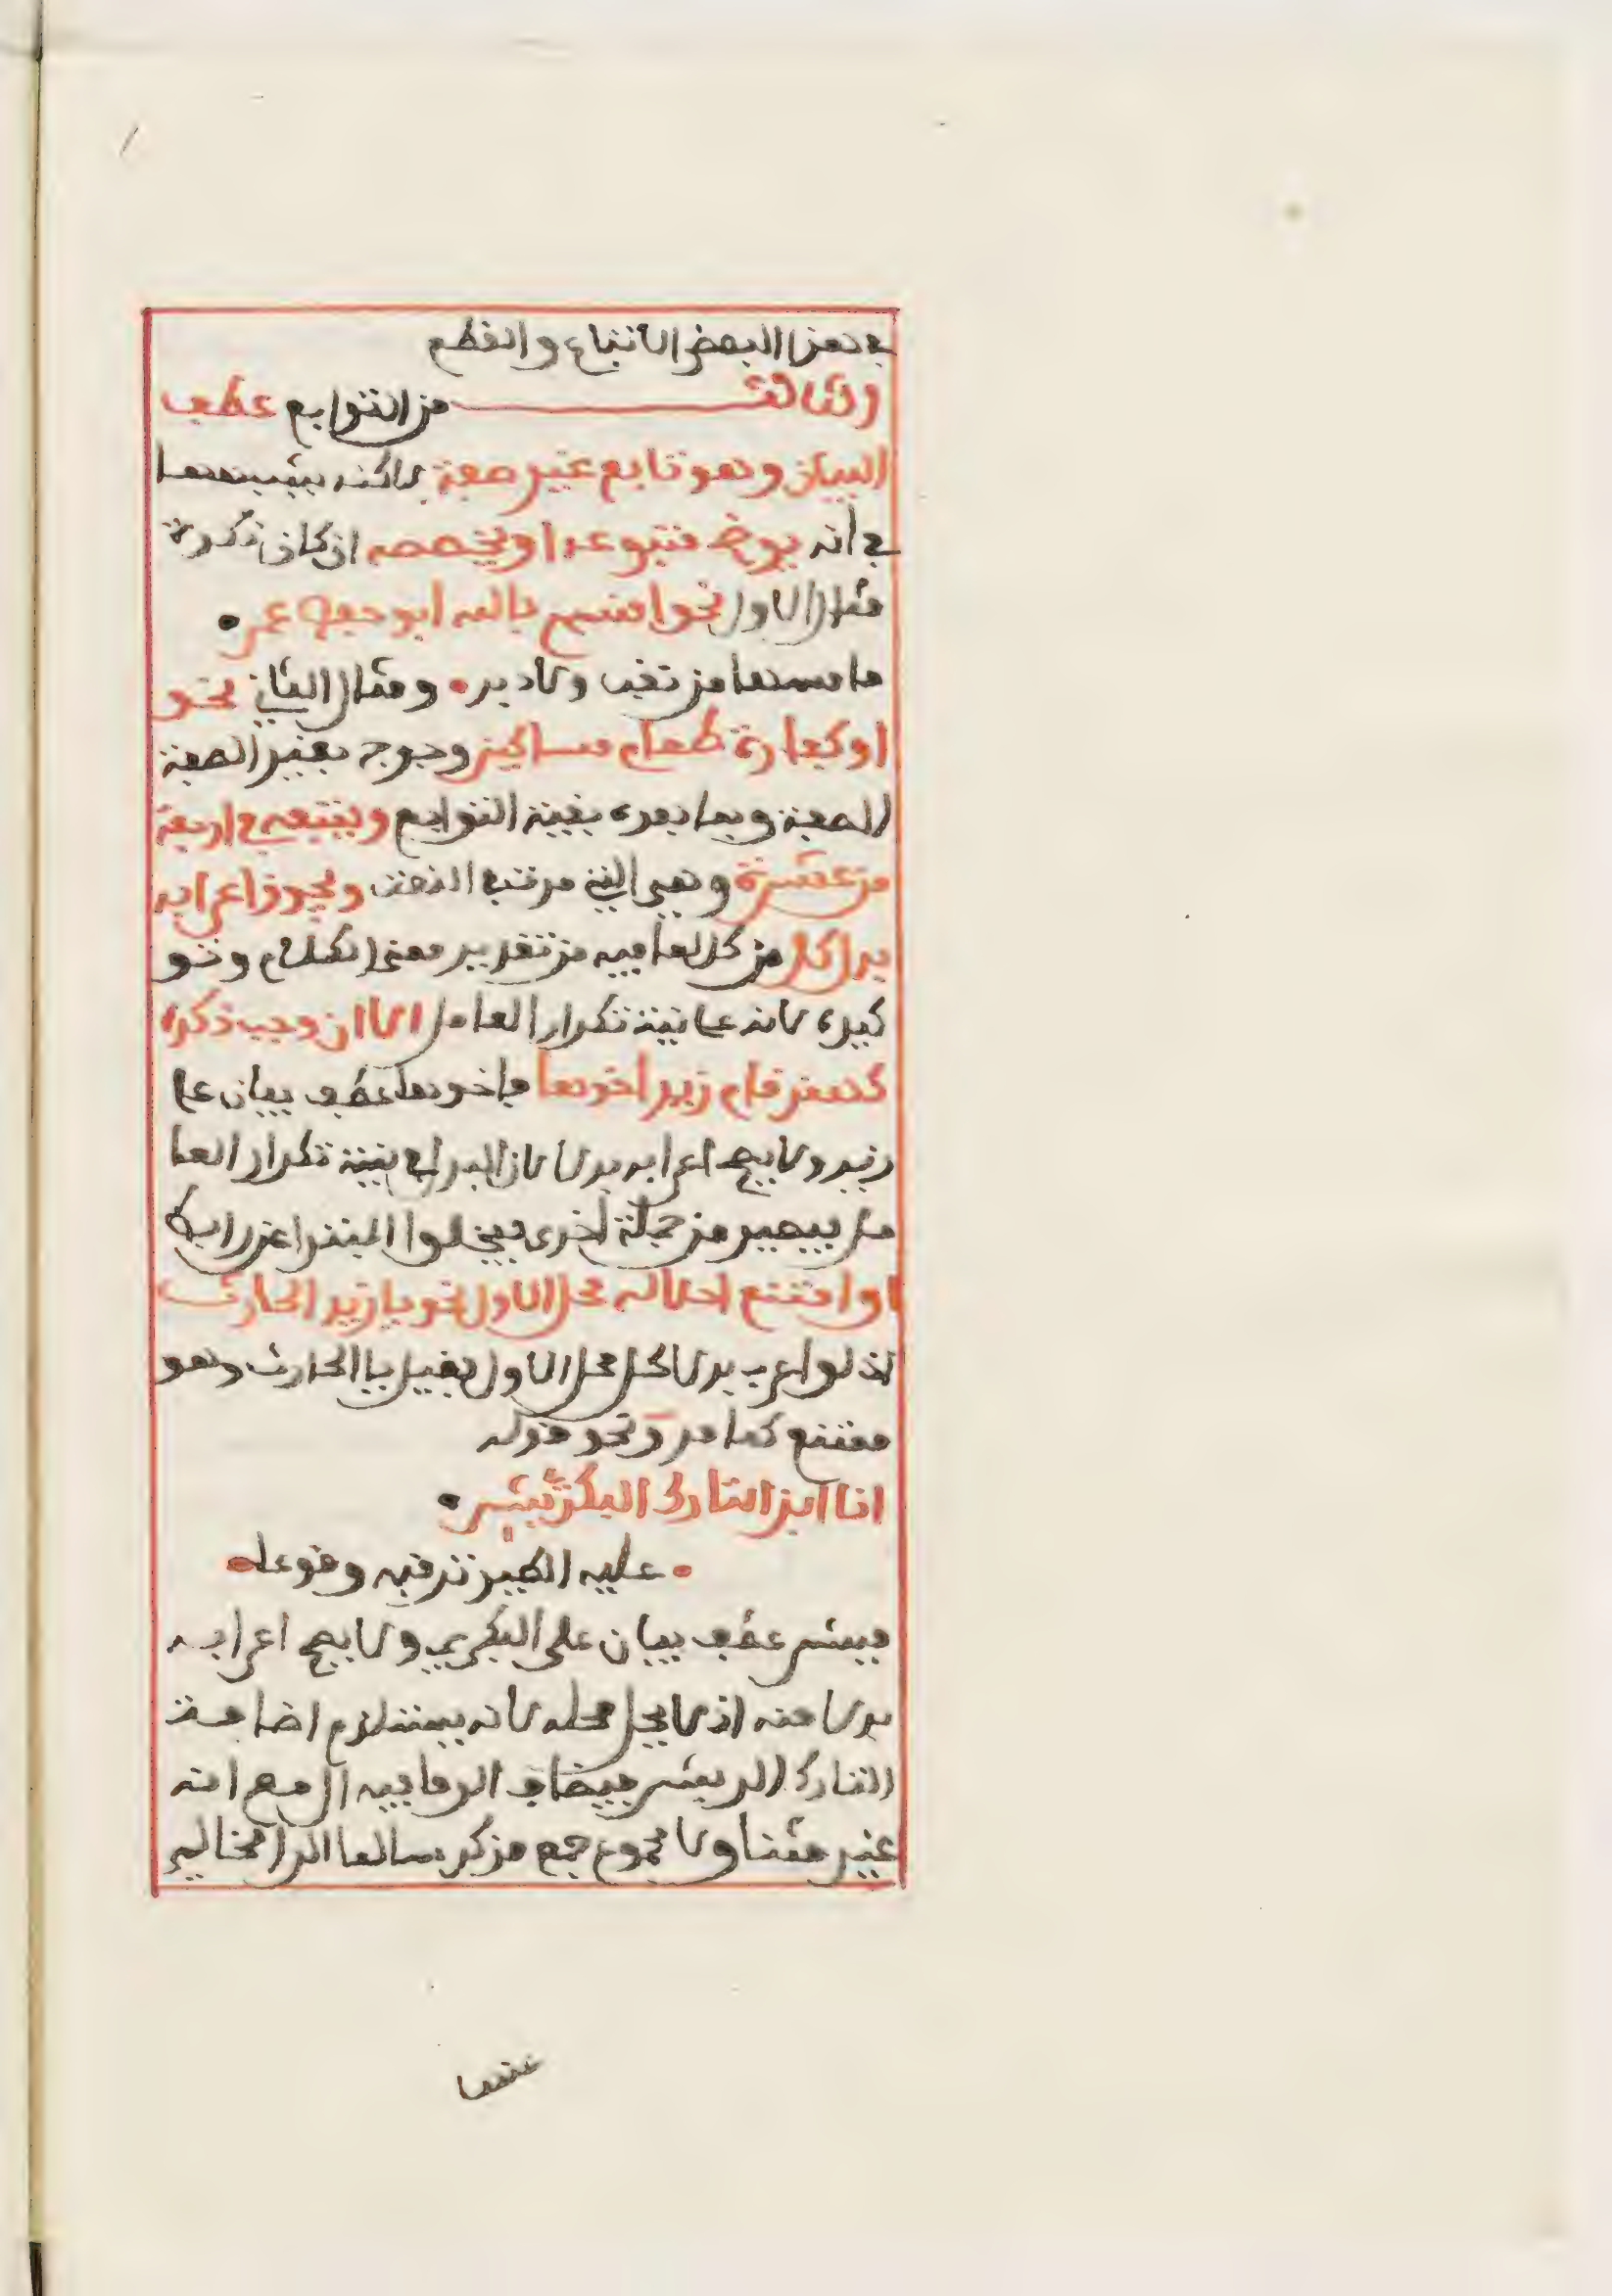 في هذا البعض الاتباع والقطع
والثالث من التوابع عطف
البيان وهو تابع غير صفة لاكنه يشبهها
في انه يوضح متبوعه او يخصصه ان كان نكرة
مثال الاول نحو اقسم بالله ابو حفص عمر
ما مسها من نقب ولا دبر ومثال الثاني نحو
او كفارة طعام مساكين وخرج بغير الصفة
الصفة وبما بعده بقية التوابع ويتبعه في اربعة
من عشرة وهي التي مر تبع النعت ويجوز اعرابه
بدل كل من كل لما فيه من تقرير معنى الكلام وتو
كيده لانه على نية تكرار العامل الا ان وجب ذكره
كهند قام زيد اخوها فاخوها عطف بيان على
زيد ولا يصح اعرابه بدلا لان البدل في نية تكرار العا
مل فيصير من جملة اخرى فيخلوا المبتدا عن رابط
او امتنع احلاله محل الاول نحو يا زيد الحارث
اذ لو اعرب بدلا لحل محل الاول فقيل يا الحارث وهو
ممتنع كما مر ونحو قوله
انا ابن التارك البكري بشر
عليه الطير ترقبه وقوعا
فبشر عطف بيان على البكري ولا يصح اعرابه
بدلا منه اذ لا يحل محله لانه يستلزم اضافة
التارك الى بشر فيضاف الى ما فيه ال مع انه
غير مثنا ولا مجموع جمع مذكر سالما الى الخالي
عنها